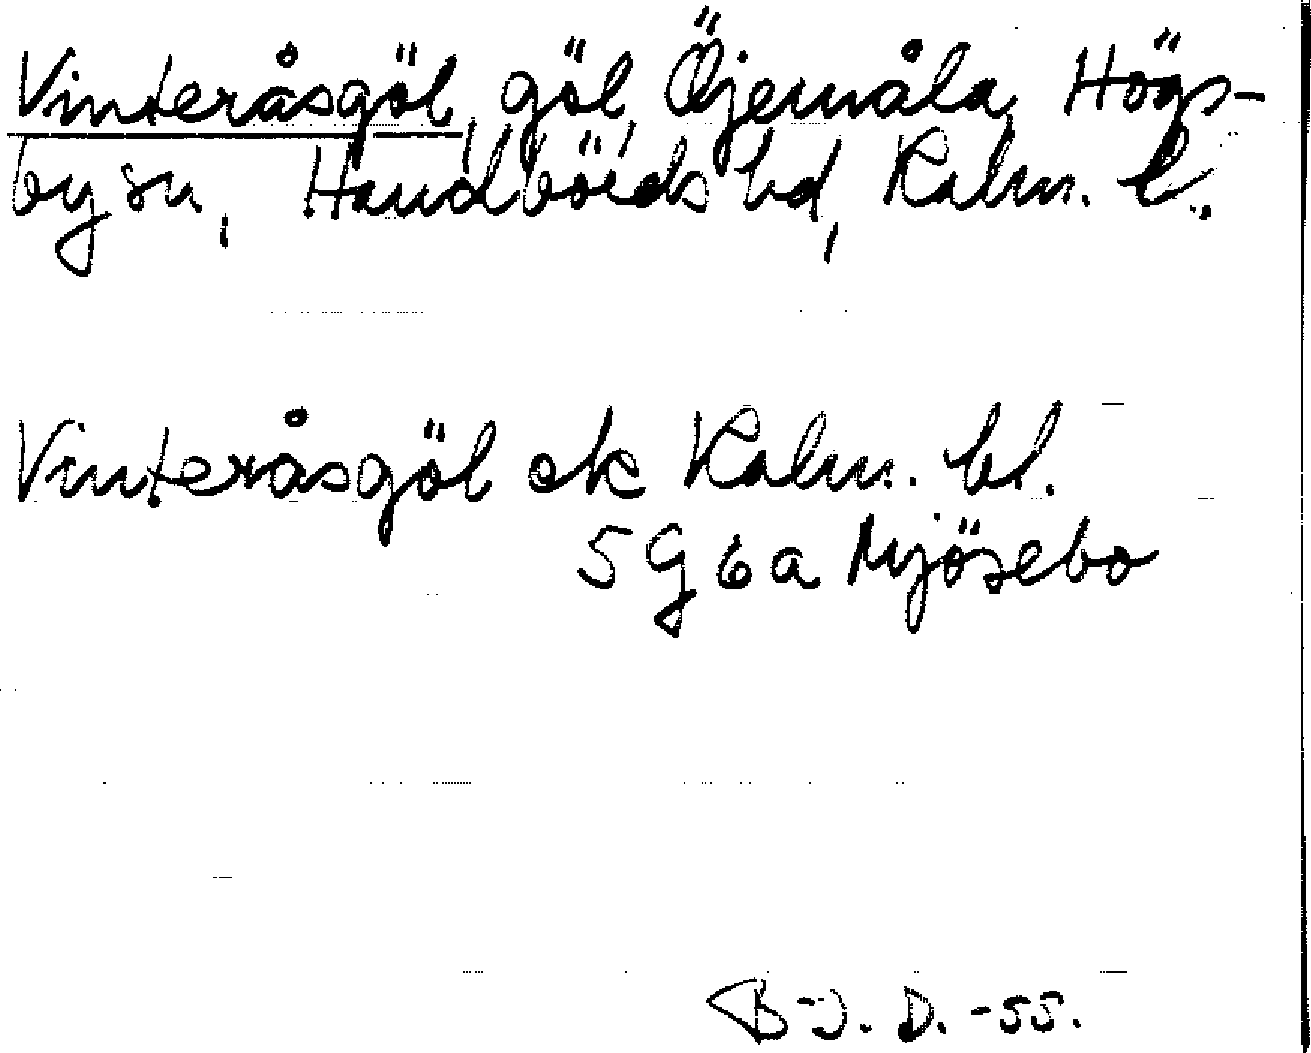 Vinteråsgöl, göl, Öjemåla, Högs-
by sn, Handbörds hd, Kalm. l.
Vinteråsgöl ek Kalm. bl.
5G6a Mjösebo
B-J. D. -55.